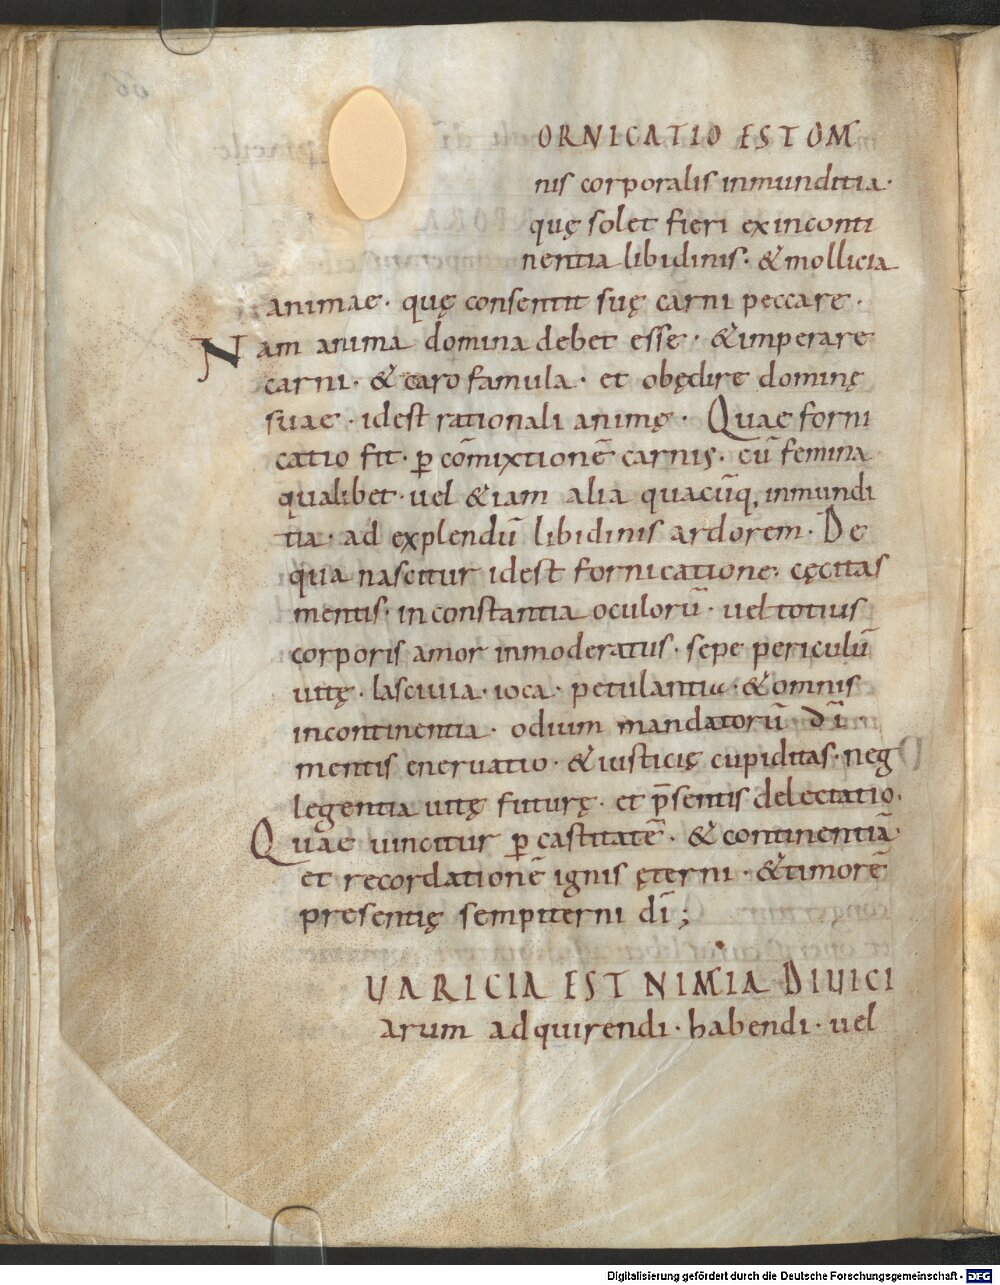 ORNICATIO EST OM
nis corporalis inmunditia·
quę solet fieri ex inconti
nentia libidinis· & mollicia
animae· quę consentit suę carni peccare·
Nam anima domina debet esse· & imperare
carni· & caro famula· et obędire dominę
suae· idest rationali animę· Quae forni
catio fit· p̄ cōmixtionē carnis· cū femina
qualibet· uel &iam alia quacūq, inmundi
tia· ad explendū libidinis ardorem· De
qua nascitur idest fornicatione· cęcitas
mentis· inconstantia oculorū· uel totius
corporis amor inmoderatus· sępe periculū
uitę· lasciuia· ioca· petulantia· & omnis
incontinentia· odium mandatorū dī
mentis eneruatio· & iusticię cupiditas· neg
legentia uitę futurę· et p̄sentis delectatio·
Quae uincitur p̄ castitatē· & continentiā·
et recordationē ignis ęterni· & timorē
presentię sempiterni dī;
UARICIA EST NIMIA DIUICI
arum adquirendi· habendi· uel
Digitalisierung gefördert durch die Deutsche Forschungsgemeinschaft - DFG